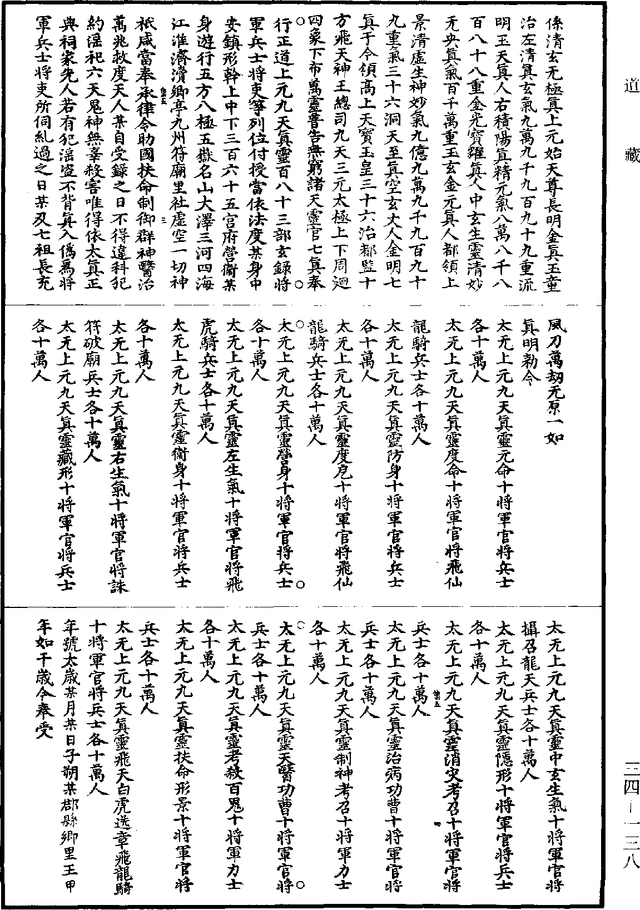 道藏
係清玄无極眞上元始天尊長明金眞玉童
治左清眞玄氣九萬九千九百九十九重流
明玉天眞人右積陽眞精元氣八萬八千八
百八十八重金光寶羅眞人中玄生靈清妙
无央眞氣百千萬重玉玄金元眞人都領上
景清虛生神妙氣九億九萬九千九百九十
九重氣三十六洞天至眞空玄丈人金明七
眞于今領高上天寶玉皇三十六治都監十
方飛天神王總司九天三元太極上下周迴
四象下布萬靈普告無窮諸天靈官七眞奉
行正道上元九天眞靈百八十三部玄錄將
軍兵士將吏等列位付授當依法度某身中
安鎮形幹上中下三百六十五宮府營衞某
身遊行五方八極五嶽名山大澤三河四海
江淮濟瀆鄉亭九州符廟里社虛空一切神
祇咸當奉承律令助國扶命制御群神醫治
萬兆救度天人某自受錄之日不得違科犯
約淫祀六天鬼神無辜殺害唯得依太眞正
典祠家先人若有犯淫盜不背眞入僞爲將
軍兵士將吏所伺糺過之日某及七祖長充
風刀萬劫元原一如
眞明勑令
太无上元九天眞靈元命十將軍官將兵士
各十萬人
太无上元九天眞靈度命十將軍官將飛仙
龍騎兵士各十萬人
太无上元九天眞靈防身十將軍官將兵士
各十萬人
太无上元九天眞靈度危十將軍官將飛仙
龍騎兵士各十萬人
太无上元九天眞靈營身十將軍官將兵士
各十萬人
太无上元九天眞靈左生氣十將軍官將飛
虎騎兵士各十萬人
太无上元九天眞靈衞身十將軍官將兵士
各十萬人
太无上元九天眞靈右生氣十將軍官將誅
符破廟兵士各十萬人
太无上元九天眞靈藏形十將軍官將兵士
各十萬人
太无上元九天眞靈中玄生氣十將軍官將
攝召龍天兵士各十萬人
太无上元九天眞靈隱形十將軍官將兵士
各十萬人
太无上元九天眞靈消災考召十將軍官將
兵士各十萬人
太无上元九天眞靈治病功曹十將軍官將
兵士各十萬人
太无上元九天眞靈制神考召十將軍力士
各十萬人
太无上元九天眞靈天醫功曹十將軍官將
兵士各十萬人
太无上元九天眞靈考殺百鬼十將軍力士
各十萬人
太无上元九天眞靈扶命形景十將軍官將
兵士各十萬人
太无上元九天眞靈飛天白虎送章飛龍騎
十將軍官將兵士各十萬人
年號太歲某月某日子朔某郡縣鄉里王甲
年如干歲今奉受
三四—一三八